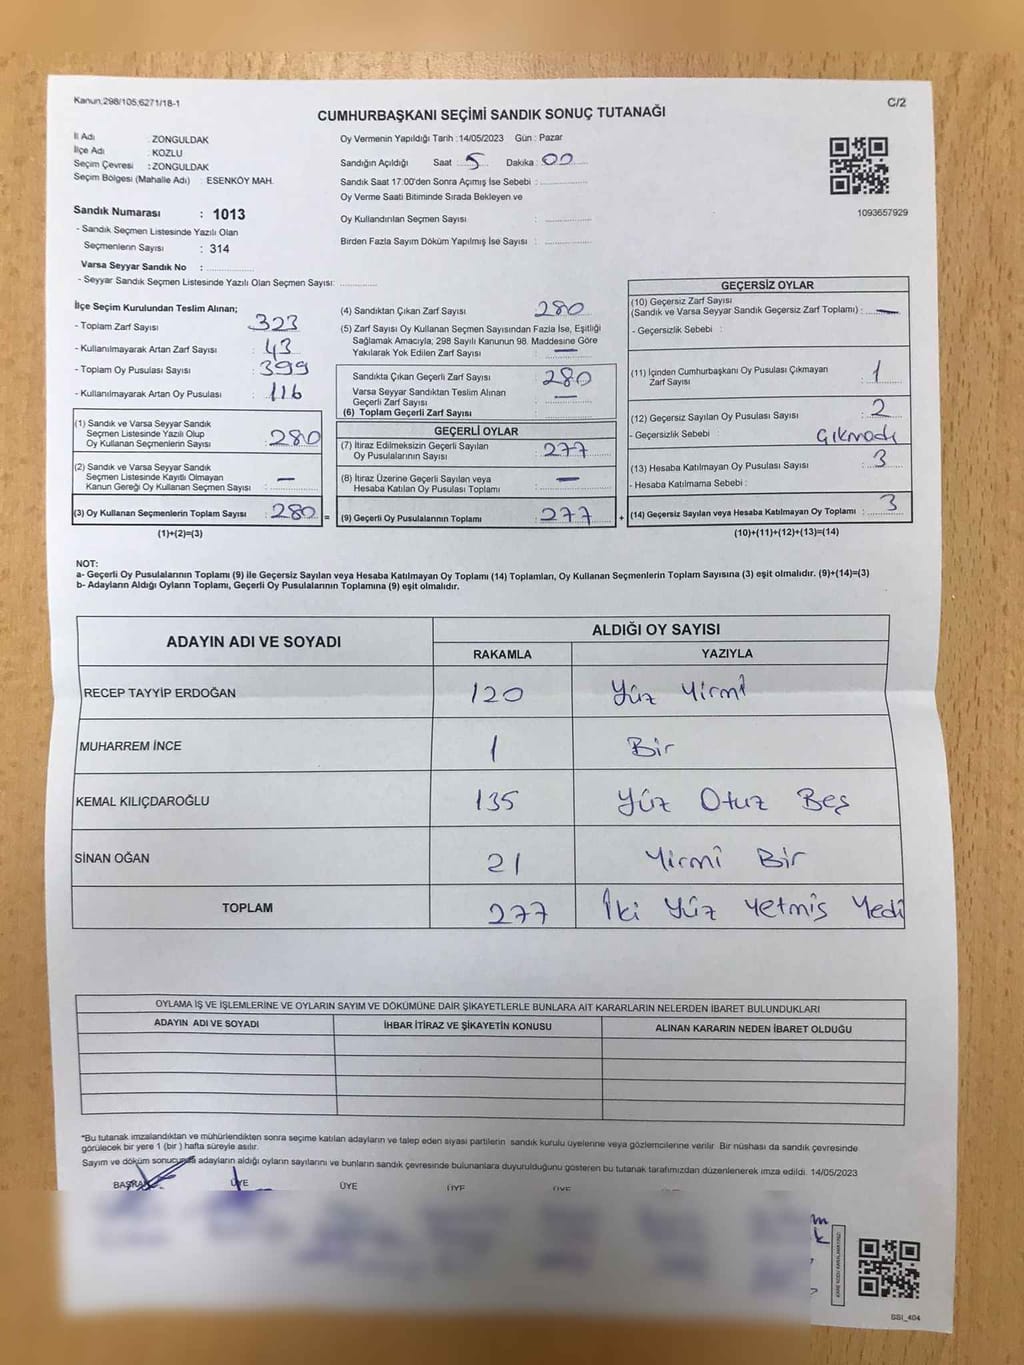 Kanun,298/105,6271/18-1
C/2
CUMHURBAŞKANI SEÇİMİ SANDIK SONUÇ TUTANAĞI
İl Adı : ZONGULDAK
İlçe Adı : KOZLU
Seçim Çevresi : ZONGULDAK
Seçim Bölgesi (Mahalle Adı) : ESENKÖY MAH.
Sandık Numarası : 1013
- Sandık Seçmen Listesinde Yazılı Olan
Seçmenlerin Sayısı : 314
Varsa Seyyar Sandık No :
- Seyyar Sandık Seçmen Listesinde Yazılı Olan Seçmen Sayısı:
Oy Vermenin Yapıldığı Tarih :14/05/2023 Gün : Pazar
Sandığın Açıldığı Saat : 5 Dakika : 00
Sandık Saat 17:00'den Sonra Açımış İse Sebebi :
Oy Verme Saati Bitiminde Sırada Bekleyen ve
Oy Kullandırılan Seçmen Sayısı :
Birden Fazla Sayım Döküm Yapılmış İse Sayısı :
1093657929
İlçe Seçim Kurulundan Teslim Alınan;
- Toplam Zarf Sayısı : 323
- Kullanılmayarak Artan Zarf Sayısı : 43
- Toplam Oy Pusulası Sayısı : 399
- Kullanılmayarak Artan Oy Pusulası : 116
(1) Sandık ve Varsa Seyyar Sandık
Seçmen Listesinde Yazılı Olup
Oy Kullanan Seçmenlerin Sayısı : 280
(2) Sandık ve Varsa Seyyar Sandık
Seçmen Listesinde Kayıtlı Olmayan
Kanun Gereği Oy Kullanan Seçmen Sayısı : —
(3) Oy Kullanan Seçmenlerin Toplam Sayısı : 280 =
(1)+(2)=(3)
(4) Sandıktan Çıkan Zarf Sayısı : 280
(5) Zarf Sayısı Oy Kullanan Seçmen Sayısından Fazla İse, Eşitliği
Sağlamak Amacıyla, 298 Sayılı Kanunun 98. Maddesine Göre
Yakılarak Yok Edilen Zarf Sayısı : —
Sandıkta Çıkan Geçerli Zarf Sayısı : 280
Varsa Seyyar Sandıktan Teslim Alınan
Geçerli Zarf Sayısı : —
(6) Toplam Geçerli Zarf Sayısı :
GEÇERLİ OYLAR
(7) İtiraz Edilmeksizin Geçerli Sayılan
Oy Pusulalarının Sayısı : 277
(8) İtiraz Üzerine Geçerli Sayılan veya
Hesaba Katılan Oy Pusulası Toplamı : —
(9) Geçerli Oy Pusulalarının Toplamı : 277 +
GEÇERSİZ OYLAR
(10) Geçersiz Zarf Sayısı
(Sandık ve Varsa Seyyar Sandık Geçersiz Zarf Toplamı) : —
- Geçersizlik Sebebi :
(11) İçinden Cumhurbaşkanı Oy Pusulası Çıkmayan
Zarf Sayısı : 1
(12) Geçersiz Sayılan Oy Pusulası Sayısı : 2
- Geçersizlik Sebebi : Çıkmadı
(13) Hesaba Katılmayan Oy Pusulası Sayısı : 3
- Hesaba Katılmama Sebebi :
(14) Geçersiz Sayılan veya Hesaba Katılmayan Oy Toplamı : 3
(10)+(11)+(12)+(13)=(14)
NOT:
a- Geçerli Oy Pusulalarının Toplamı (9) ile Geçersiz Sayılan veya Hesaba Katılmayan Oy Toplamı (14) Toplamları, Oy Kullanan Seçmenlerin Toplam Sayısına (3) eşit olmalıdır. (9)+(14)=(3)
b- Adayların Aldığı Oyların Toplamı, Geçerli Oy Pusulalarının Toplamına (9) eşit olmalıdır.
ADAYIN ADI VE SOYADI ALDIĞI OY SAYISI
RAKAMLA YAZIYLA
RECEP TAYYİP ERDOĞAN 120 Yüz Yirmi
MUHARREM İNCE 1 Bir
KEMAL KILIÇDAROĞLU 135 Yüz Otuz Beş
SİNAN OĞAN 21 Yirmi Bir
TOPLAM 277 İki Yüz Yetmiş Yedi
OYLAMA İŞ VE İŞLEMLERİNE VE OYLARIN SAYIM VE DÖKÜMÜNE DAİR ŞİKAYETLERLE BUNLARA AİT KARARLARIN NELERDEN İBARET BULUNDUKLARI
ADAYIN ADI VE SOYADI İHBAR İTİRAZ VE ŞİKAYETİN KONUSU ALINAN KARARIN NEDEN İBARET OLDUĞU
*Bu tutanak imzalandıktan ve mühürlendikten sonra seçime katılan adayların ve talep eden siyasi partilerin sandık kurulu üyelerine veya gözlemcilerine verilir. Bir nüshası da sandık çevresinde
görülecek bir yere 1 (bir ) hafta süreyle asılır.
Sayım ve döküm sonucunda adayların aldığı oyların sayılarını ve bunların sandık çevresinde bulunanlara duyurulduğunu gösteren bu tutanak tarafımızdan düzenlenerek imza edildi. 14/05/2023
BAŞKAN ÜYE ÜYE ÜYE ÜYE
SSI_404